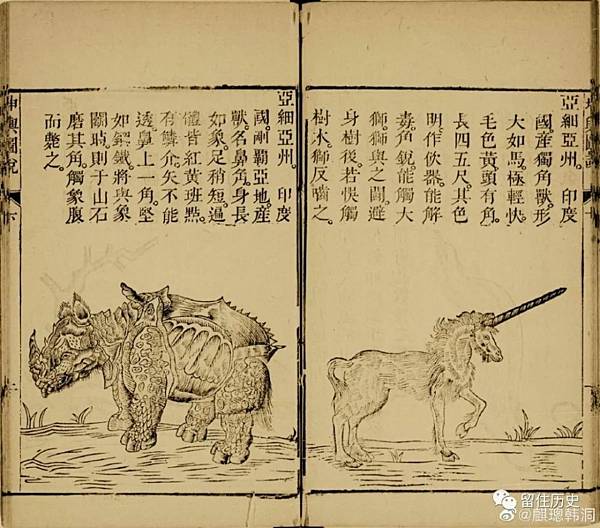 亞細亞州。印度
國產獨角獸形
大如馬。極輕快。
毛色黃。頭有角。
長四五尺。其色
明作飲器。能解
毒。角銳能觸大
獅。獅與之鬭。避
身樹後。若悞觸
樹木。獅反嚙之。
亞細亞州。印度
國。剛霸亞地產
獸名鼻角。身長
如象。足稍短。遍
體皆紅黃班點。
有鱗介。矢不能
透。鼻上一角。堅
如鋼鐵。將與象
鬭時。則于山石
磨其角。觸象腹
而斃之。
坤輿圖說
下
留住历史
@麒璁韩洞